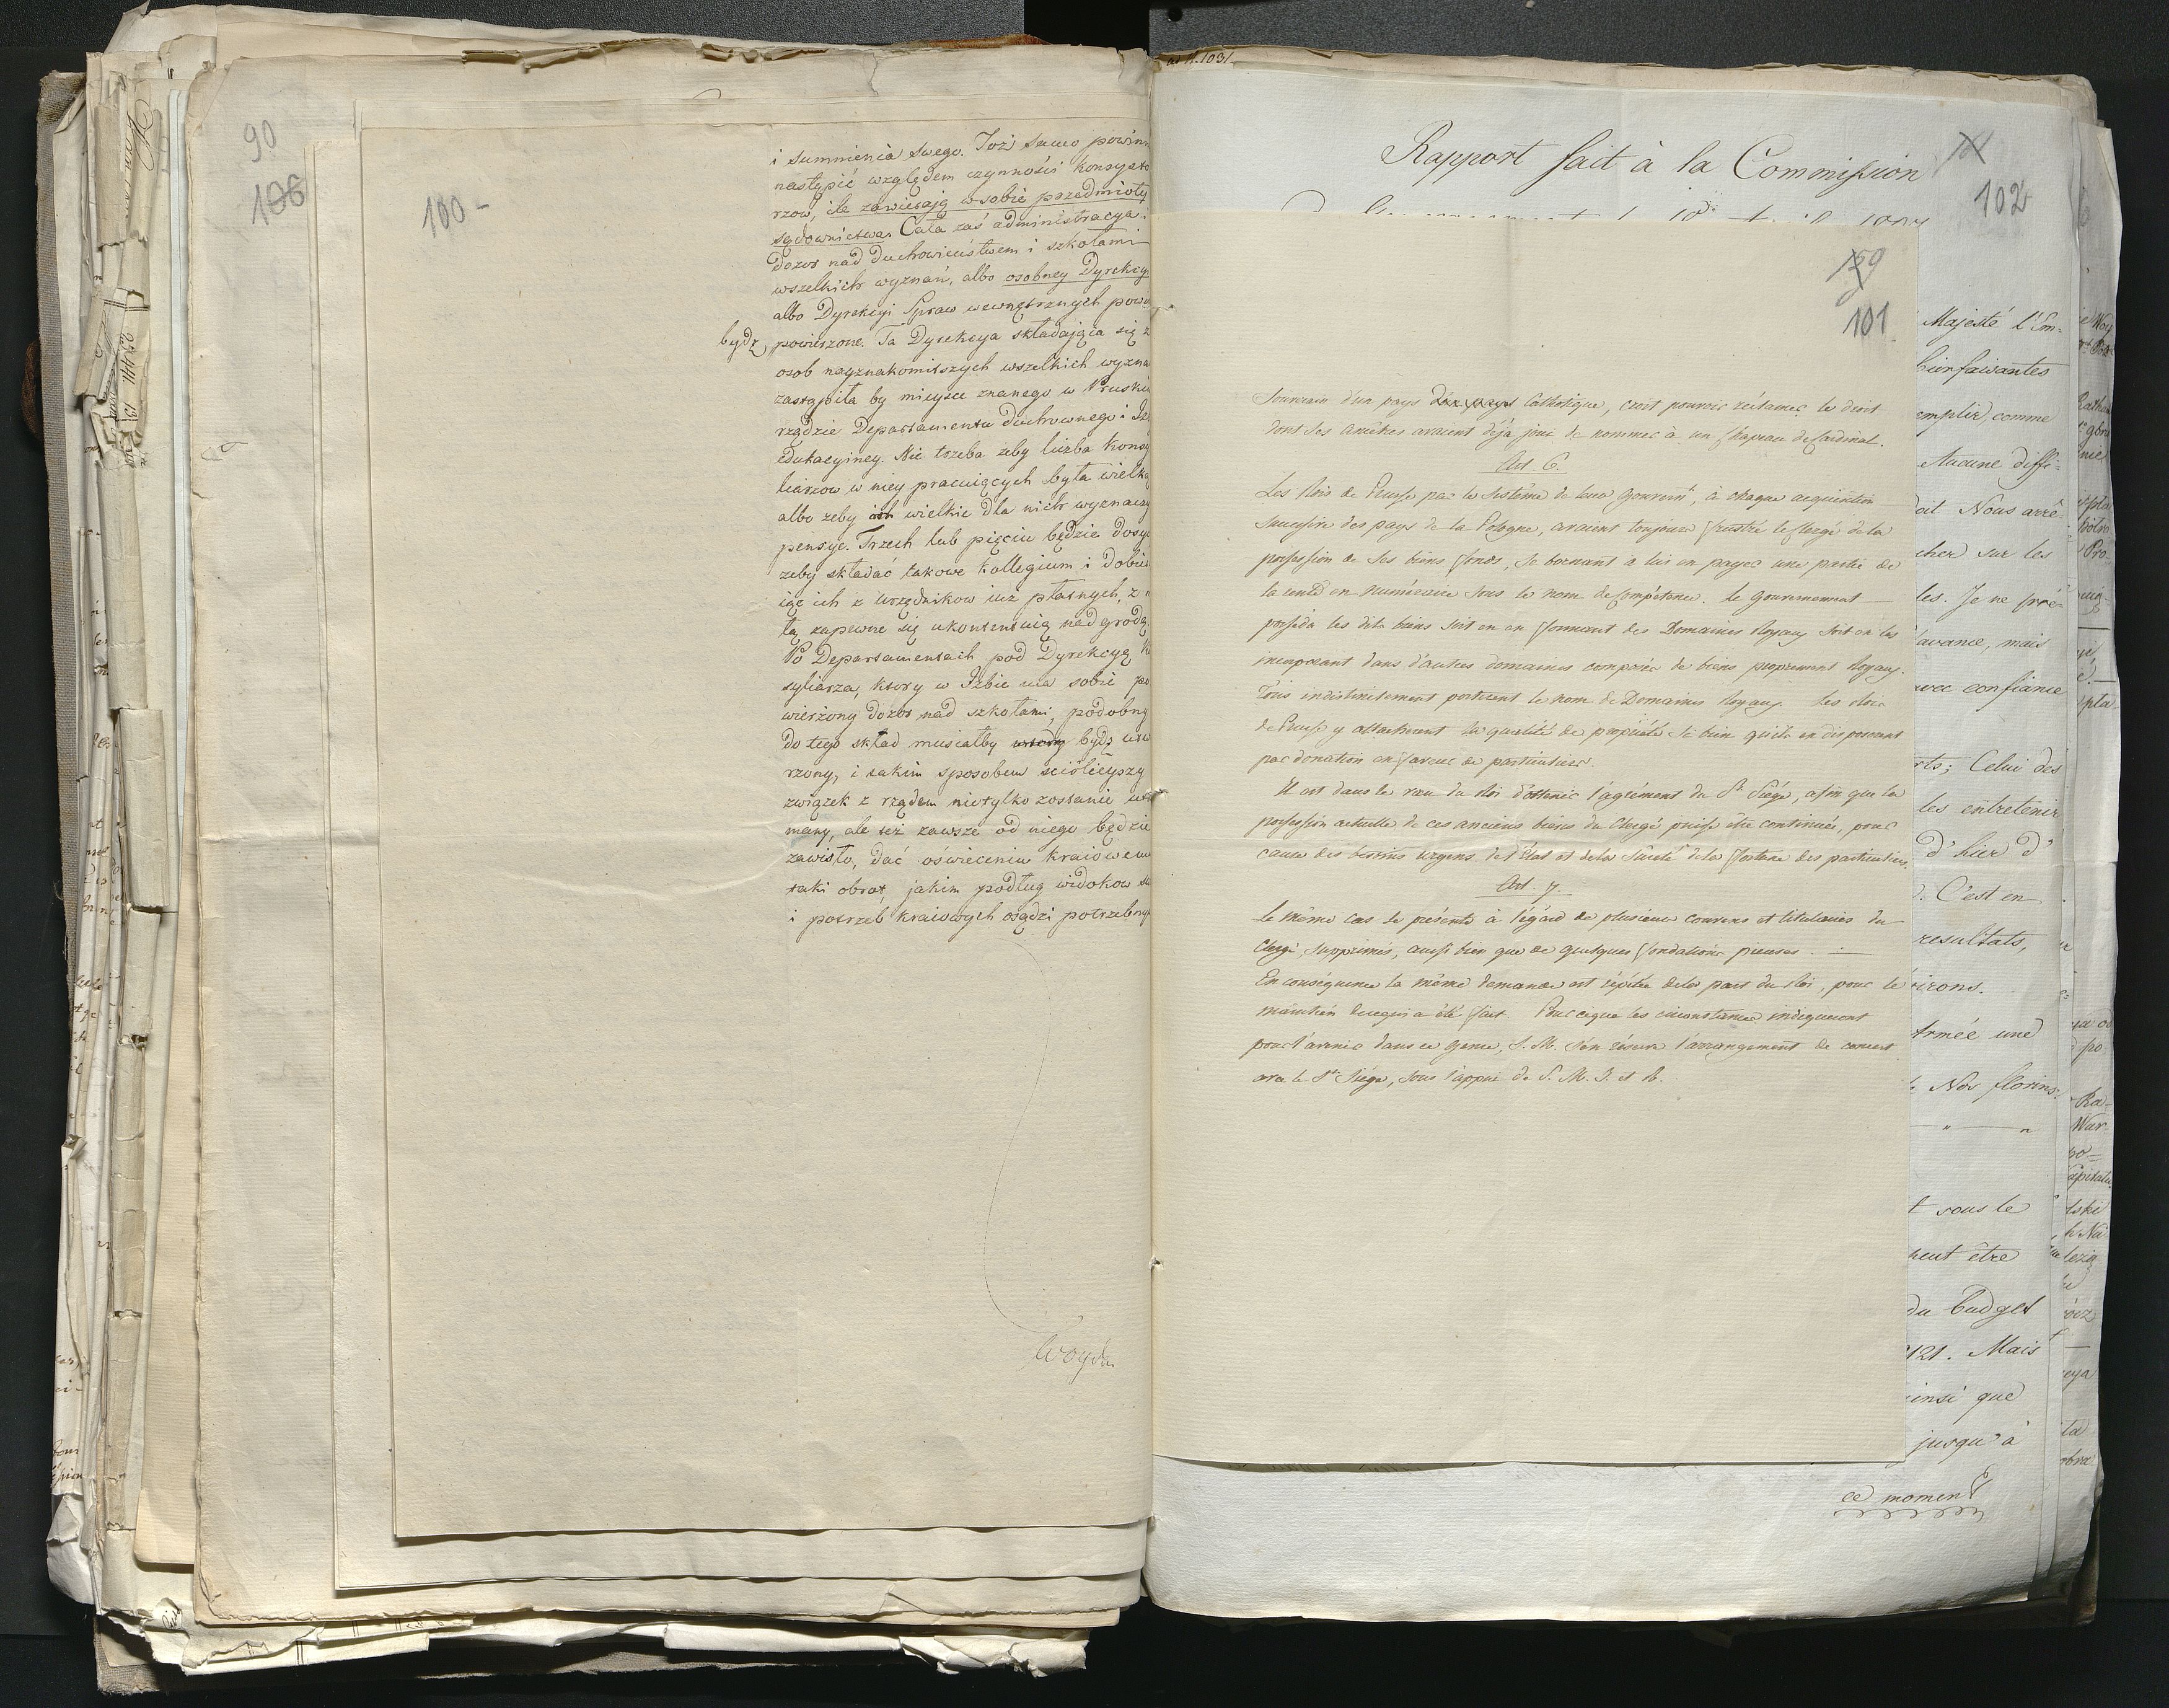 90
106
100 -
i sumnienia swego. Toż samo powinn
nastąpić względem czynności Konsysto
rzow, ile zawieraią w sobie przedmioty
sądownictwa. Cała zaś administracya i
Dozor nad Duchowieństwem i szkołami
wszelkich wyznań, albo osobney Dyrekcyi
albo Dyrekcyi Spraw wewnętrznych powin
bydź powierzone. Ta Dyrekcya składaiąca się z
osob nayznakomitszych wszelkich wyzna
zastąpiła by mieysce znanego w Pruskim
rządzie Departamentu duchownego i Izb
edukacyiney. Nie trzeba żeby liczba Konsy
liarzow w niey pracuiących była wielką
albo żeby wielkie dla nich wyznaczy
pensye. Trzech lub pięciu będzie dosyć
żeby składać takowe Kollegium i dobier
iąc ich z urzędnikow iuż płatnych, z
tą zapewne się ukontentuią nadgrodą.
Po Departamentach pod Dyrekcyą Ko
syliarza, ktory w Izbie ma sobie po
wierzony dozor nad szkołami, podobny
do tego skład musiałby bydź utwo
rzony, i takim sposobem ściśleyszy
związek z rządem nietylko zostanie
many, ale też zawsze od niego będzie
zawisło, dać oświeceniu kraiowemu
taki obrot, jakim podług widokow sw
i potrzeb kraiowych osądzi potrzebny
Woyda
ad N. 1031
Rapport fait à la Commission
102
159
101
Souverain d'un pays Catholique, croit pouvoir réclamer le droit
dont ses ancêtres avaient déjà joui de nommer à un Chapeau de Cardinal.
Art. 6.
Les Rois de Prusse par le Sistême de leur Gouvernt, à chaque acquisition
successive des pays de la Pologne, avaient toujours frustré le Clergé de la
possession de ses biens fonds, se bornant à lui en payer une partie de
la rente en numéraire sous le nom de Compétence. Le gouvernement
posséda les dits biens soit en en formant des Domaines Royaux soit en les
incorporant dans d'autres domaines composés de biens proprement Royaux.
Tous indistinctement portaient le nom de Domaines Royaux. Les Rois
de Prusse y attachaient la qualité de propriété si bien qu'ils en disposaient
par donation en faveur de particuliers.
Il est dans le vœu du Roi d'obtenir l'agrément du St Siége, afin que la
possession actuelle de ces anciens biens du Clergé puisse être continuée, pour
cause des besoins urgens de l'Etat et de la Sûreté de la fortune des particuliers.
Art. 7.
Le même cas se présente à l'égard de plusieurs couvens et titulaires du
Clergé, supprimés, aussi bien que de quelques fondations pieuses.
En conséquence la même demande est répétée de la part du Roi, pour le
maintien de ce qui a été fait. Pour ce que les circonstances indiqueront
pour l'avenir dans ce genre, S. M. s'en réserve l'arrangement de concert
avec le St Siége, sous l'appui de S. M. I. et R.
Majesté l'Em-
bienfaisantes
emplir, comme
Aucune diffi-
oit Nous arrê-
cher sur les
les. Je ne pré-
avance, mais
avec confiance
rts; Celui des
les entretenir
d'hier d'
C'est en
resultats,
irons.
Armée une
Nos florins.
t sous le
peut être
du budget
121. Mais
insi que
jusqu'à
ce moment